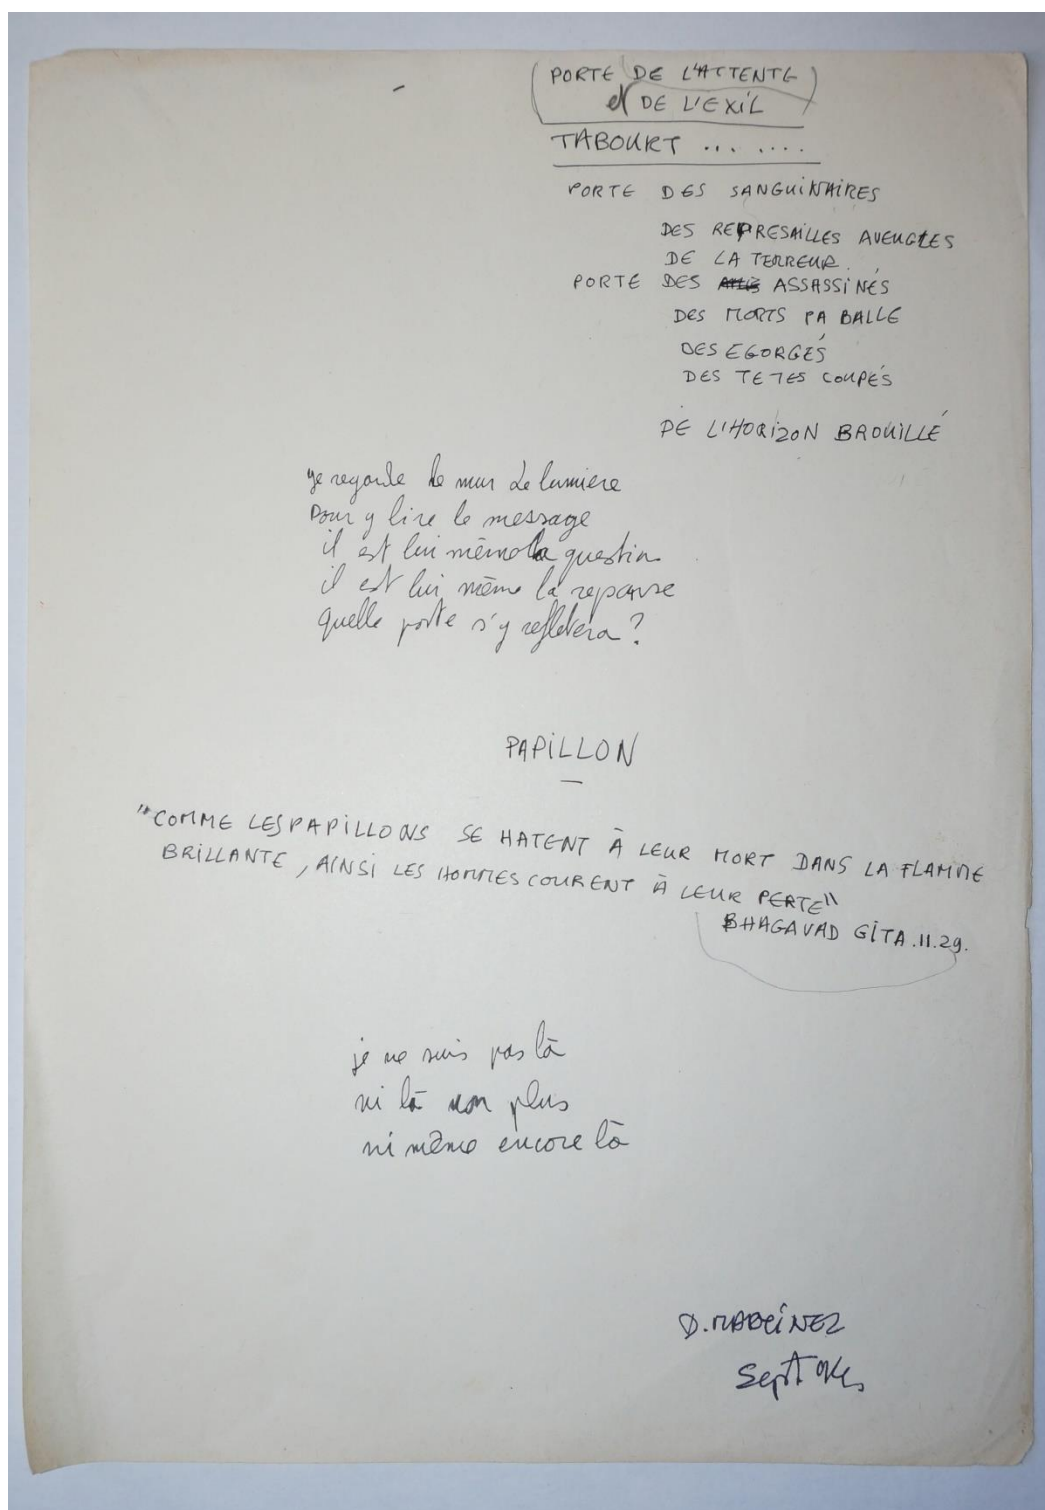 (PORTE DE L'ATTENTE)
et DE L'EXIL
TABOURT ... ....
PORTE DES SANGUINAIRES
DES REPRESAILLES AVEUGLES
DE LA TERREUR.
PORTE DES ASSASSINÉS
DES MORTS PA BALLE
DES EGORGÉS
DES TETES COUPÉS
DE L'HORIZON BROUILLÉ
je regarde le mur de lumiere
Pour y lire le message
il est lui même la question
il est lui même la reponse
quelle porte s'y refletera ?
PAPILLON
"COMME LES PAPILLONS SE HATENT À LEUR MORT DANS LA FLAMME
BRILLANTE, AINSI LES HOMMES COURENT À LEUR PERTE"
BHAGAVAD GITA.11.29.
je ne suis pas là
ni là non plus
ni même encore là
D. MARTINEZ
Sept